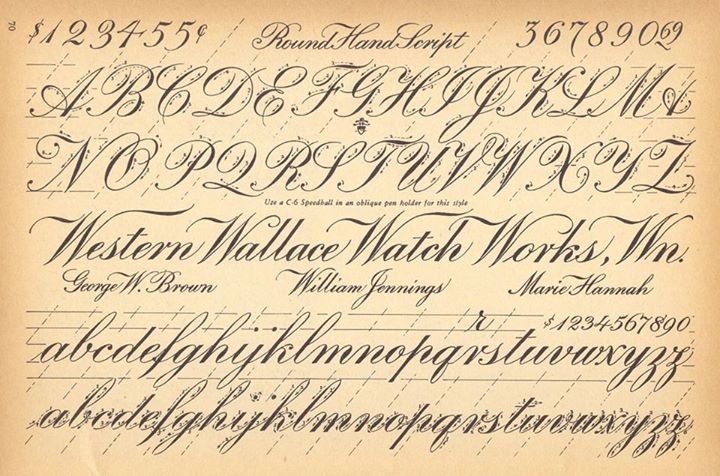 70
$123455¢ Round Hand Script 3678906⁹
ABCDEFGHIJKLM
NOPQRSTUVWXYZ
Use a C-6 Speedball in an oblique pen holder for this style
Western Wallace Watch Works, Wn.
George W. Brown William Jennings Marie Hannah
r $1234567890
abcdefghijklmnopqrstuvwxyzz
abcdefghijklmnopqrstuvwxyzz